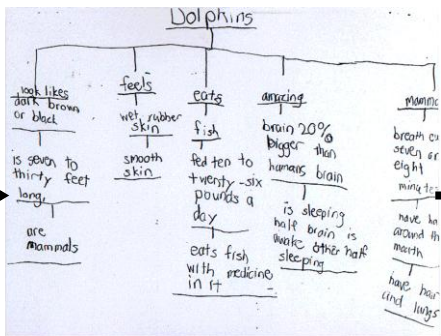 Dolphins
look likes
dark brown
or black
is seven to
thirty feet
long,
are
mammals
feels
wet, rubber
skin
smooth
skin
eats
fish
fed ten to
twenty-six
pounds a
day
eats fish
with medicine
in it
amazing
brain 20%
bigger than
humans brain
is sleeping
half brain is
awake other half
sleeping
breath
seven or
eight
have
around
have
and lungs